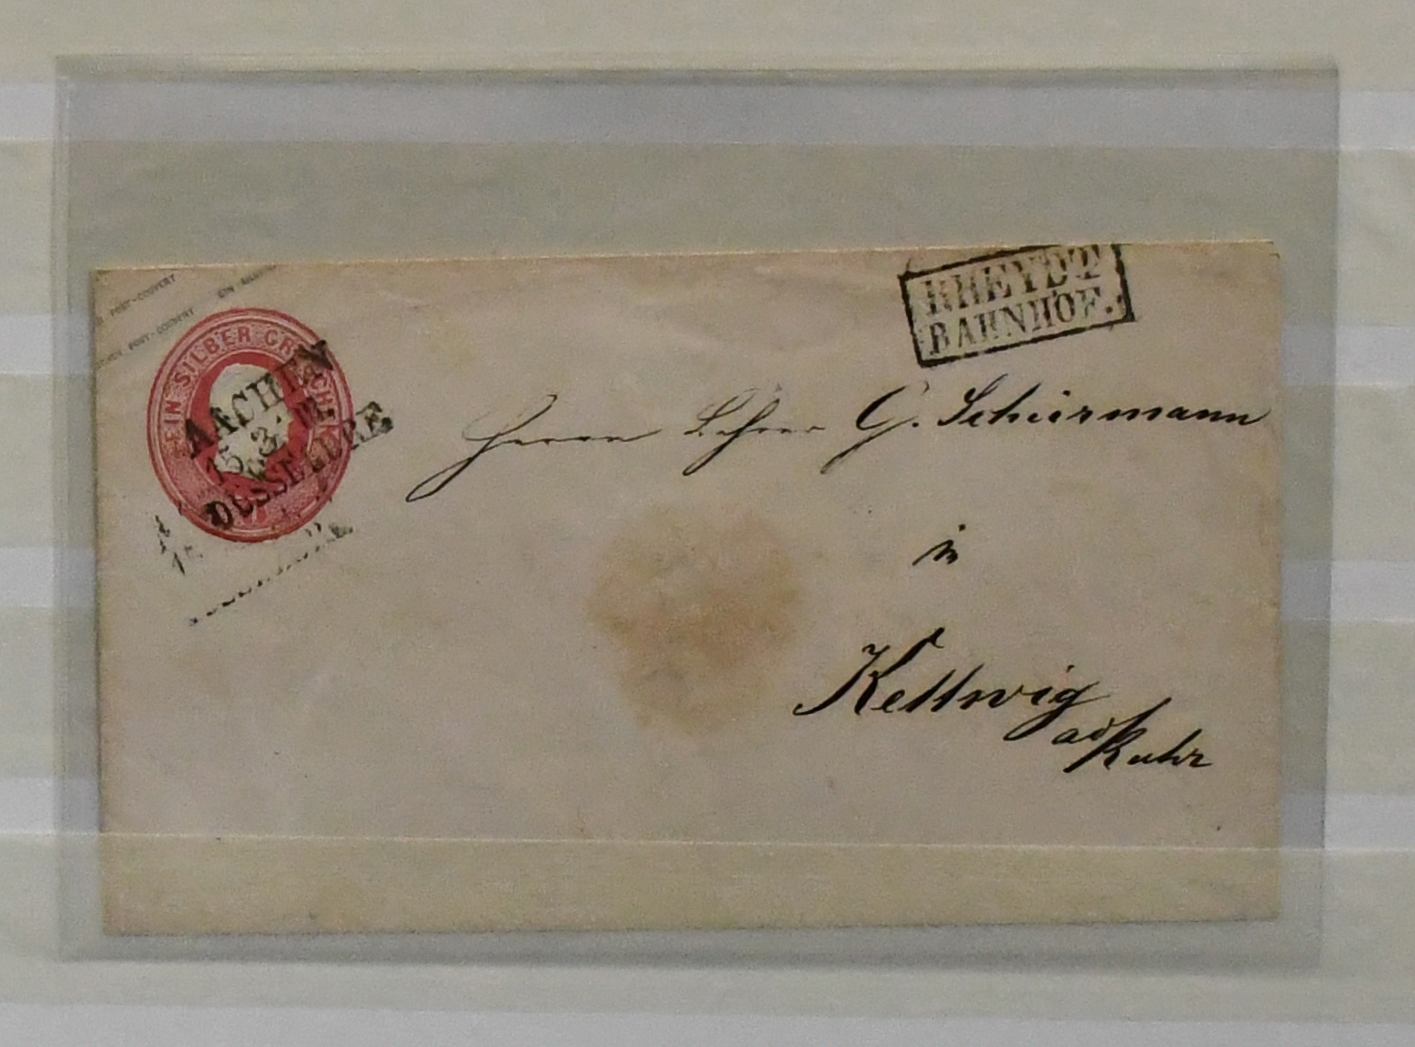 POST-COUVERT
POST-COUVERT
EIN SILBER GROSCHEN
AACHEN
15 3
DÜSSELDRF
RHEYDT
BAHNHOF.
Herrn Lehrer G. Schürmann
in
Kettwig
a/d Ruhr